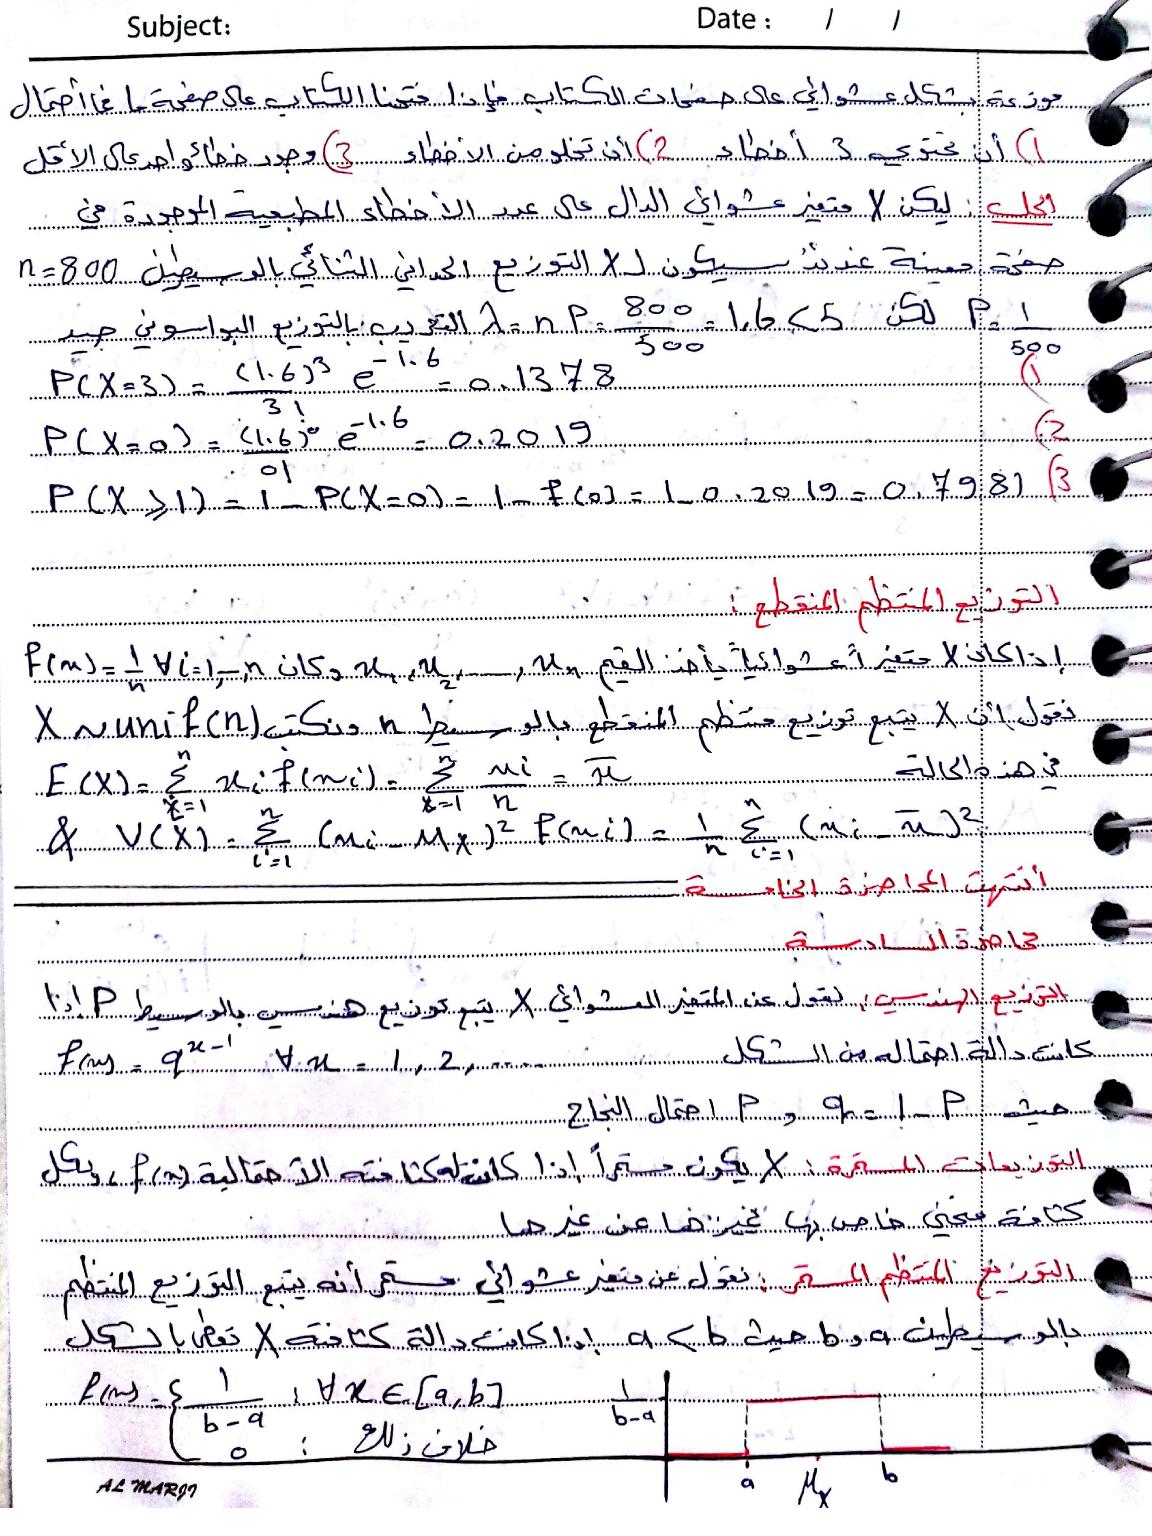 Subject: Date: / /
موزعة بشكل عشوائي على صفحات الكتاب فإذا فتحنا الكتاب على صفحة ما فما احتمال
1) أن تحتوي 3 أخطاء 2) أن تخلو من الأخطاء 3) وجود خطأ واحد على الأقل
الحل: ليكن X متغير عشوائي الدال على عدد الأخطاء المطبعية الموجودة في
صفحة معينة عندئذ سيكون لـ X التوزيع الحداني الثنائي بالوسيطين n=800
P = 1/500 لكن λ = nP = 800/500 = 1.6 < 5 التقريب بالتوزيع البواسوني جيد
1) P(X=3) = (1.6)^3/3! e^-1.6 = 0.1378
2) P(X=0) = (1.6)^0/0! e^-1.6 = 0.2019
3) P(X⩾1) = 1 - P(X=0) = 1 - f(0) = 1 - 0.2019 = 0.7981
التوزيع المنتظم المنقطع:
إذا كان X متغيراً عشوائياً يأخذ القيم x1, x2, ..., xn وكان f(x) = 1/n ∀i=1,-,n
نقول أن X يتبع توزيع منتظم المنقطع بالوسيط n ونكتب X ~ unif(n)
في هذه الحالة E(X) = Σ xi f(xi) = Σ xi/n = x̄
& V(X) = Σ (xi - Mx)^2 f(xi) = 1/n Σ (xi - x̄)^2
أنتهت المحاضرة الخامسة
محاضرة السادسة
التوزيع الهندسي: نقول عن المتغير العشوائي X يتبع توزيع هندسي بالوسيط P إذا
كانت دالة احتماله من الشكل f(x) = q^x-1 ∀x = 1, 2, ......
حيث q = 1-P و P احتمال النجاح
التوزيعات المستمرة: X يكون مستمراً إذا كانت له كثافته الاحتمالية f(x)، ولكل
كثافة منحني خاص بها تميزها عن غيرها
التوزيع المنتظم المستمر: نقول عن متغير عشوائي مستمر أنه يتبع التوزيع المنتظم
بالوسيطين a و b حيث a < b إذا كانت دالة كثافته X تعطى بالشكل
f(x) = { 1/b-a ; ∀x ∈ [a,b]
0 ; خلاف ذلك
1/b-a
a μx b
AL MARJI